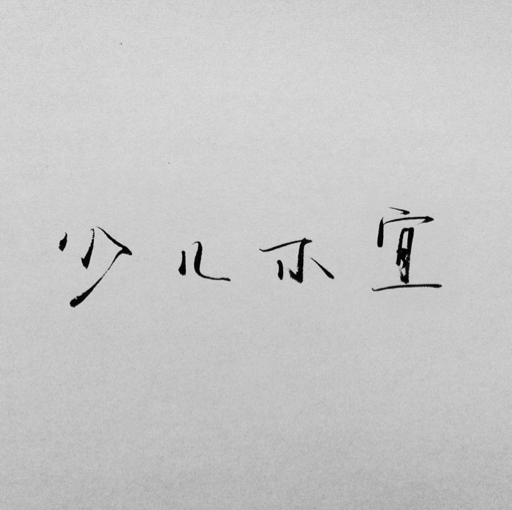 少儿不宜